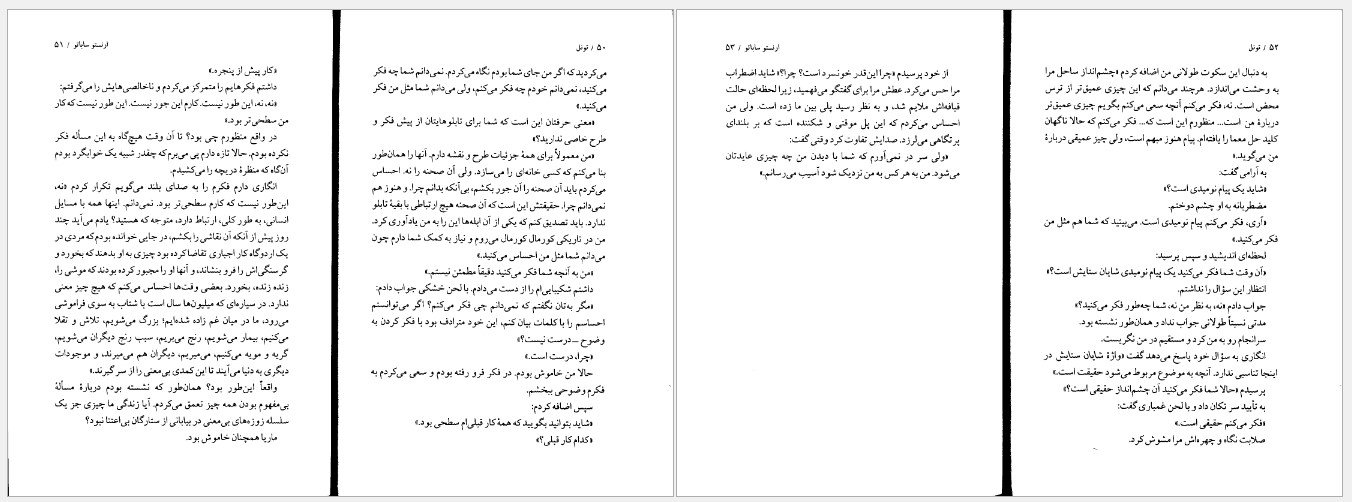 ۵۰ / تونل
می‌کردید که اگر من جای شما بودم نگاه می‌کردم. نمی‌دانم شما چه فکر
می‌کنید، نمی‌دانم خودم چه فکر می‌کنم، ولی می‌دانم شما مثل من فکر
می‌کنید.»
«معنی حرفتان این است که شما برای تابلوهایتان از پیش فکر و
طرح خاصی ندارید؟»
«من معمولاً برای همهٔ جزئیات طرح و نقشه دارم. آنها را همان‌طور
بنا می‌کنم که کسی خانه‌ای را می‌سازد. ولی آن صحنه را نه. احساس
می‌کردم باید آن صحنه را آن جور بکشم، بی‌آنکه بدانم چرا. و هنوز هم
نمی‌دانم چرا. حقیقتش این است که آن صحنه هیچ ارتباطی با بقیهٔ تابلو
ندارد. باید تصدیق کنم که یکی از آن ابله‌ها این را به من یادآوری کرد.
من در تاریکی کورمال کورمال می‌روم و نیاز به کمک شما دارم چون
می‌دانم شما مثل من احساس می‌کنید.»
«من به آنچه شما فکر می‌کنید دقیقاً مطمئن نیستم.»
داشتم شکیبایی‌ام را از دست می‌دادم. با لحن خشکی جواب دادم:
«مگر به‌تان نگفتم که نمی‌دانم چی فکر می‌کنم؟ اگر می‌توانستم
احساسم را با کلمات بیان کنم، این خود مترادف بود با فکر کردن به
وضوح ــ درست نیست؟»
«چرا، درست است.»
حالا من خاموش بودم، در فکر فرو رفته بودم و سعی می‌کردم به
فکرم وضوحی ببخشم.
سپس اضافه کردم:
«شاید بتوانید بگویید که همهٔ کار قبلی‌ام سطحی بود.»
«کدام کار قبلی؟»
ارنستو ساباتو / ۵۱
«کار پیش از پنجره.»
داشتم فکرهایم را متمرکز می‌کردم و ناخالصی‌هایش را می‌گرفتم:
«نه، نه، این طور نیست. کارم این جور نیست. این طور نیست که کار
من سطحی‌تر بود.»
در واقع منظورم چی بود؟ تا آن وقت هیچ‌گاه به این مسأله فکر
نکرده بودم. حالا تازه دارم پی می‌برم که چقدر شبیه یک خوابگرد بودم
آن‌گاه که منظرهٔ دریچه را می‌کشیدم.
انگاری دارم فکرم را به صدای بلند می‌گویم تکرار کردم «نه،
این‌طور نیست که کارم سطحی‌تر بود. نمی‌دانم. اینها همه با مسایل
انسانی، به طور کلی، ارتباط دارد، متوجه که هستید؟ یادم می‌آید چند
روز پیش از آنکه آن نقاشی را بکشم، در جایی خوانده بودم که مردی در
یک اردوگاه کار اجباری تقاضا کرده بود چیزی به او بدهند که بخورد و
گرسنگی‌اش را فرو بنشاند، و آنها او را مجبور کرده بودند که موشی را،
زنده زنده، بخورد. بعضی وقت‌ها احساس می‌کنم که هیچ چیز معنی
ندارد. در سیاره‌ای که میلیون‌ها سال است با شتاب به سوی فراموشی
می‌رود، ما در میان غم زاده شده‌ایم؛ بزرگ می‌شویم، تلاش و تقلا
می‌کنیم، بیمار می‌شویم، رنج می‌بریم، سبب رنج دیگران می‌شویم،
گریه و مویه می‌کنیم، می‌میریم، دیگران هم می‌میرند، و موجودات
دیگری به دنیا می‌آیند تا این کمدی بی‌معنی را از سر گیرند.»
واقعاً این‌طور بود؟ همان‌طور که نشسته بودم دربارهٔ مسألهٔ
بی‌مفهوم بودن همه چیز تعمق می‌کردم. آیا زندگی ما چیزی جز یک
سلسله زوزه‌های بی‌معنی در بیابانی از ستارگان بی‌اعتنا نبود؟
ماریا همچنان خاموش بود.
۵۲ / تونل
به دنبال این سکوت طولانی من اضافه کردم «چشم‌انداز ساحل مرا
به وحشت می‌اندازد. هرچند می‌دانم که این چیزی عمیق‌تر از ترس
محض است. نه، فکر می‌کنم آنچه سعی می‌کنم بگویم چیزی عمیق‌تر
دربارهٔ من است... منظورم این است که... فکر می‌کنم که حالا ناگهان
کلید حل معما را یافته‌ام. پیام هنوز مبهم است، ولی چیز عمیقی دربارهٔ
من می‌گوید.»
به آرامی گفت:
«شاید یک پیام نومیدی است؟»
مضطربانه به او چشم دوختم.
«آری، فکر می‌کنم پیام نومیدی است. می‌بینید که شما هم مثل من
فکر می‌کنید.»
لحظه‌ای اندیشید و سپس پرسید:
«آن وقت شما فکر می‌کنید یک پیام نومیدی شایان ستایش است؟»
انتظار این سؤال را نداشتم.
جواب دادم «نه، به نظر من نه، شما چه‌طور فکر می‌کنید؟»
مدتی نسبتاً طولانی جواب نداد و همان‌طور نشسته بود.
سرانجام رو به من کرد و مستقیم در من نگریست.
انگاری به سؤال خود پاسخ می‌دهد گفت «واژهٔ شایان ستایش در
اینجا تناسبی ندارد. آنچه به موضوع مربوط می‌شود حقیقت است.»
پرسیدم «حالا شما فکر می‌کنید آن چشم‌انداز حقیقی است؟»
به تأیید سر تکان داد و با لحن غمباری گفت:
«فکر می‌کنم حقیقی است.»
صلابت نگاه و چهره‌اش مرا مشوش کرد.
ارنستو ساباتو / ۵۳
از خود پرسیدم «چرا این‌قدر خونسرد است؟ چرا؟» شاید اضطراب
مرا حس می‌کرد. عطش مرا برای گفتگو می‌فهمید، زیرا لحظه‌ای حالت
قیافه‌اش ملایم شد، و به نظر رسید پلی بین ما زده است. ولی من
احساس می‌کردم که این پل موقتی و شکننده است که بر بلندای
پرتگاهی می‌لرزد. صدایش تفاوت کرد وقتی گفت:
«ولی سر در نمی‌آورم که شما با دیدن من چه چیزی عایدتان
می‌شود. من به هر کس به من نزدیک شود آسیب می‌رسانم.»